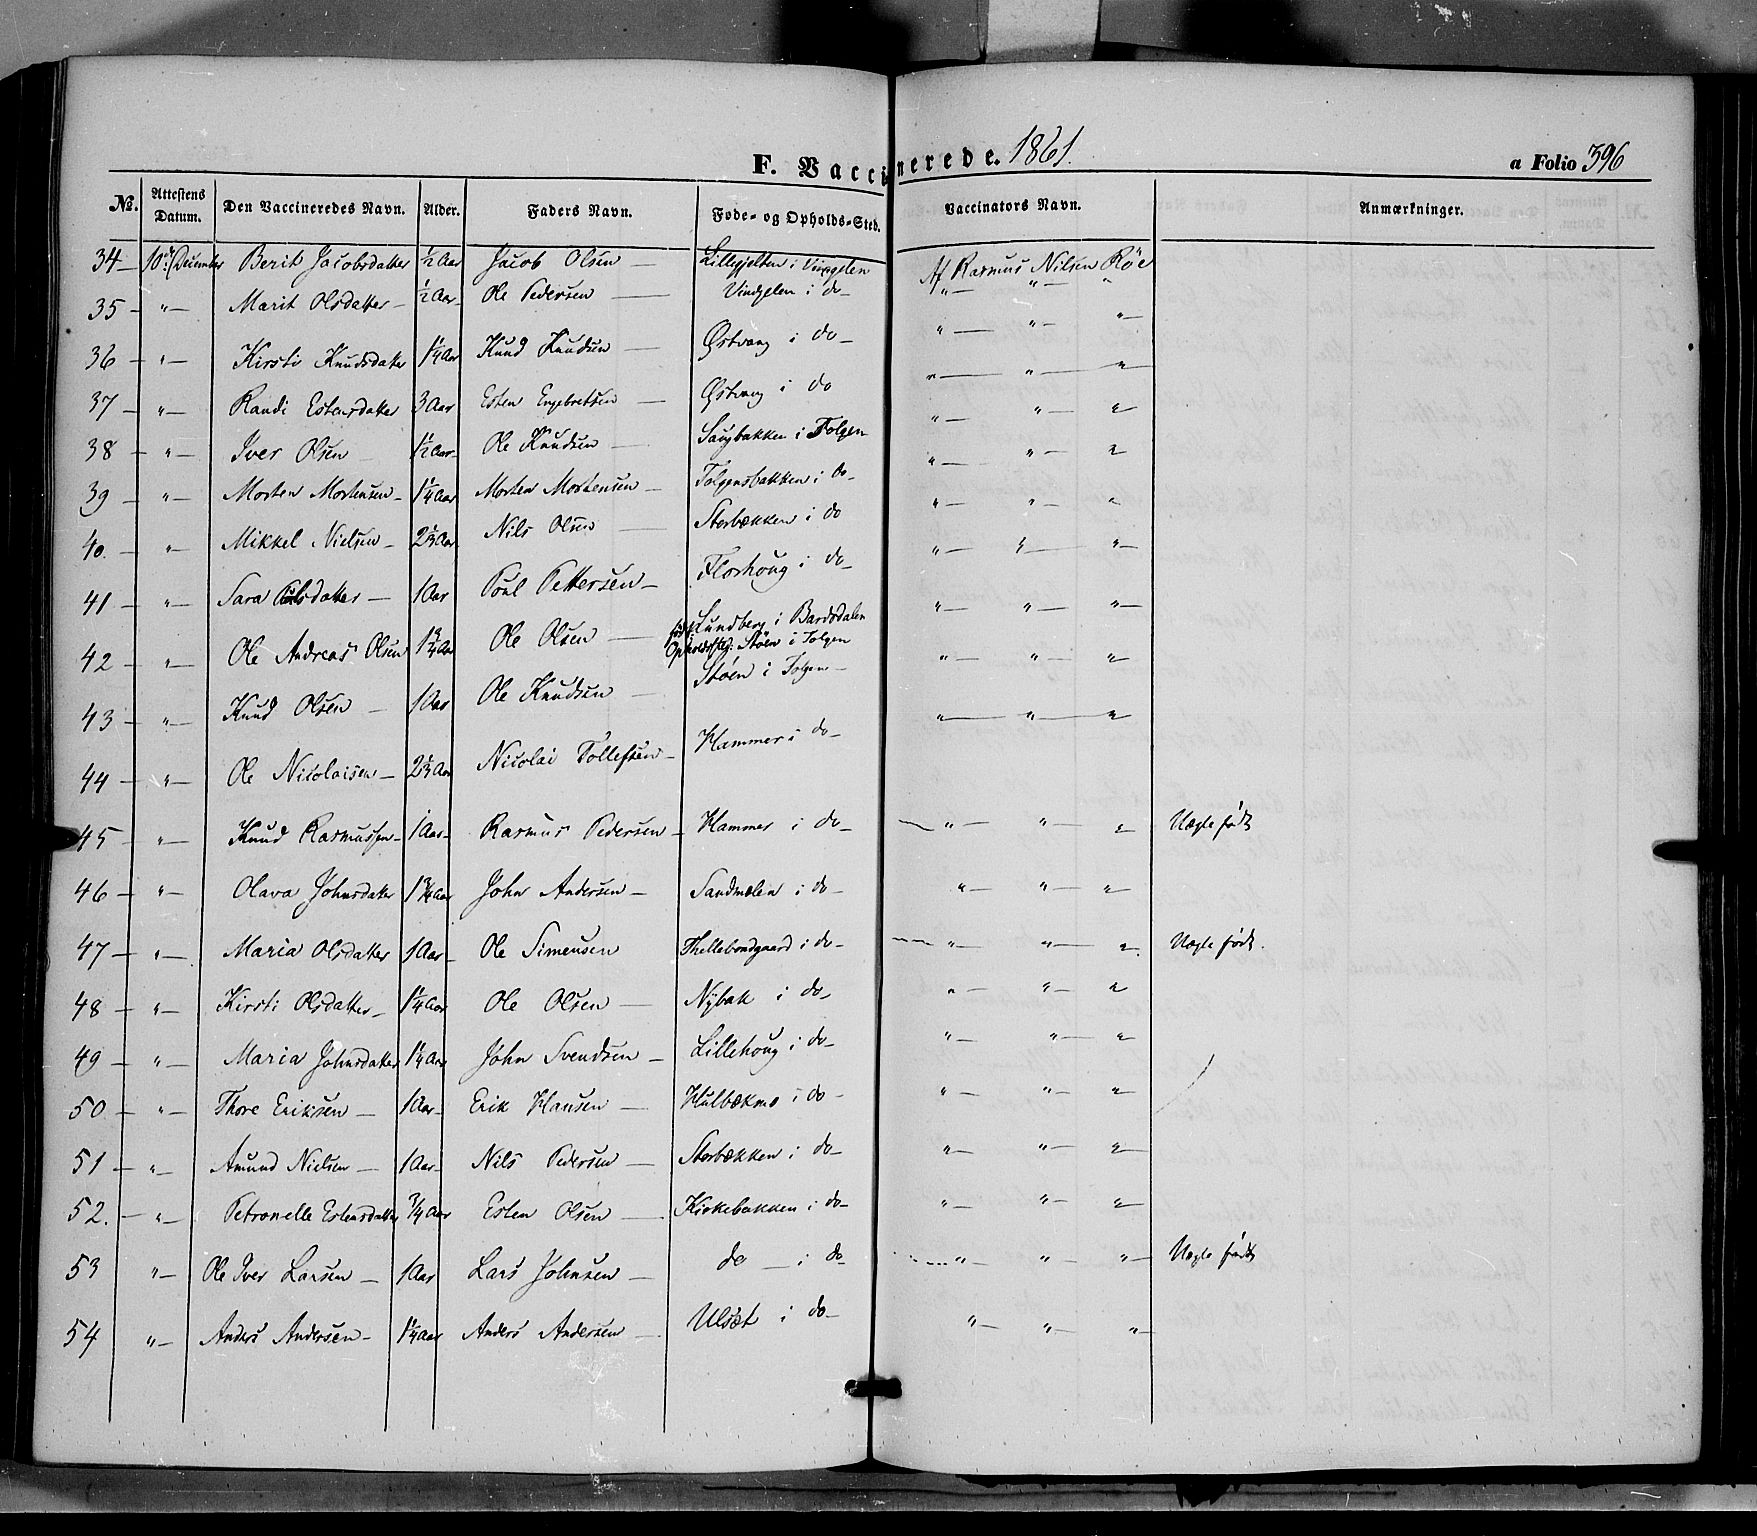 F. Vaccinerede. 1861.
a Folio 396
No. Attestens Datum. Den Vaccineredes Navn. Alder. Faders Navn. Føde- og Opholds-Sted. Vaccinators Navn. Anmærkninger.
34 — 10de December Berit Jacobsdatter ½ Aar Jacob Olsen — i Vingelen Af Rasmus Nilsen Röe
35 — " — Marit Olsdatter — ½ Aar — Ole Pedersen — Vingelen i do — " — " — "
36 — " — Kirsti Knudsdatter 1¼ Aar Knud Knudsen — Østvang i do — " — " — "
37 — " — Randi Estensdatter 3 Aar Esten Engebretsen — Østvang i do " — " — "
38 — " — Iver Olsen — 1½ Aar — Ole Knudsen — i Tolgen " — " — "
39 — " — Morten Mortensen — 1¼ Aar Morten Mortensen — Tolgensbakken i do — " — " — "
40. — " — Mikkel Nielsen — Nils Olsen — Storbækken i do " — " — "
41 — " — Sara — 1 Aar Poul Pettersen — Florhoug i do — " — " — "
42 — " — Ole Andreas Olsen 1¾ Aar Ole Olsen — Lundberg i Bardodalen
Støen i Tolgen " — " — "
43 — " — Knud Olsen — 1 Aar Ole Knudsen — Støen i Tolgen — " — " — "
44 — " — Ole Nicolaisen — Nicolai Tollefsen — Hammer i do — " — " — "
45 — " — Knud Rasmussen — 1 Aar — Rasmus Pedersen — Hammer i do — " — " — " Uægte født
46 — " — Olava Johnsdatter 1¾ Aar John Andersen — Sandmælen i do — " — " — "
47 — " — Maria Olsdatter 1 Aar — Ole Simensen Thellebondgaard i do — " — " — " Uægte født.
48 — " — Kirsti Olsdatter — 1¼ Aar Ole Olsen — Nÿbak i do — " — " — "
49 — " — Maria Johnsdatter 1¼ Aar John Svendsen — Lillehoug i do — " — " — "
50 — " — Thore Eriksen — 1 Aar — Erik Hansen — Hulbækmo i do — " — " — "
51 — " — Amund Nielsen — 1 Aar — Nils Pedersen — Storbækken i do — " — " — "
52. — " — Petronelle Estensdatter ¾ Aar Esten Olsen — Kirkebakken i do — " — " — "
53 " — Ole Iver Larsen — 1 Aar Lars Johnsen — do — i do — " — " — " — Uægte født
54 " — Anders Andersen — 1¼ Aar Anders Andersen — Ulsæt i do — " — " — " —